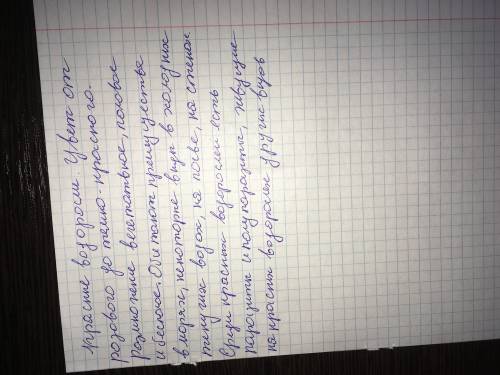 Красные водоросли. Цвет от
розового до темно-красного.
Размножение вегетативное, половое
и бесполое. Обитают преимущества
в морях, некоторые виды в холодных
текучих водах, на почве, на стенах.
Среди красных водорослей есть
паразиты и полупаразиты, живущие
на красных водорослях других видов